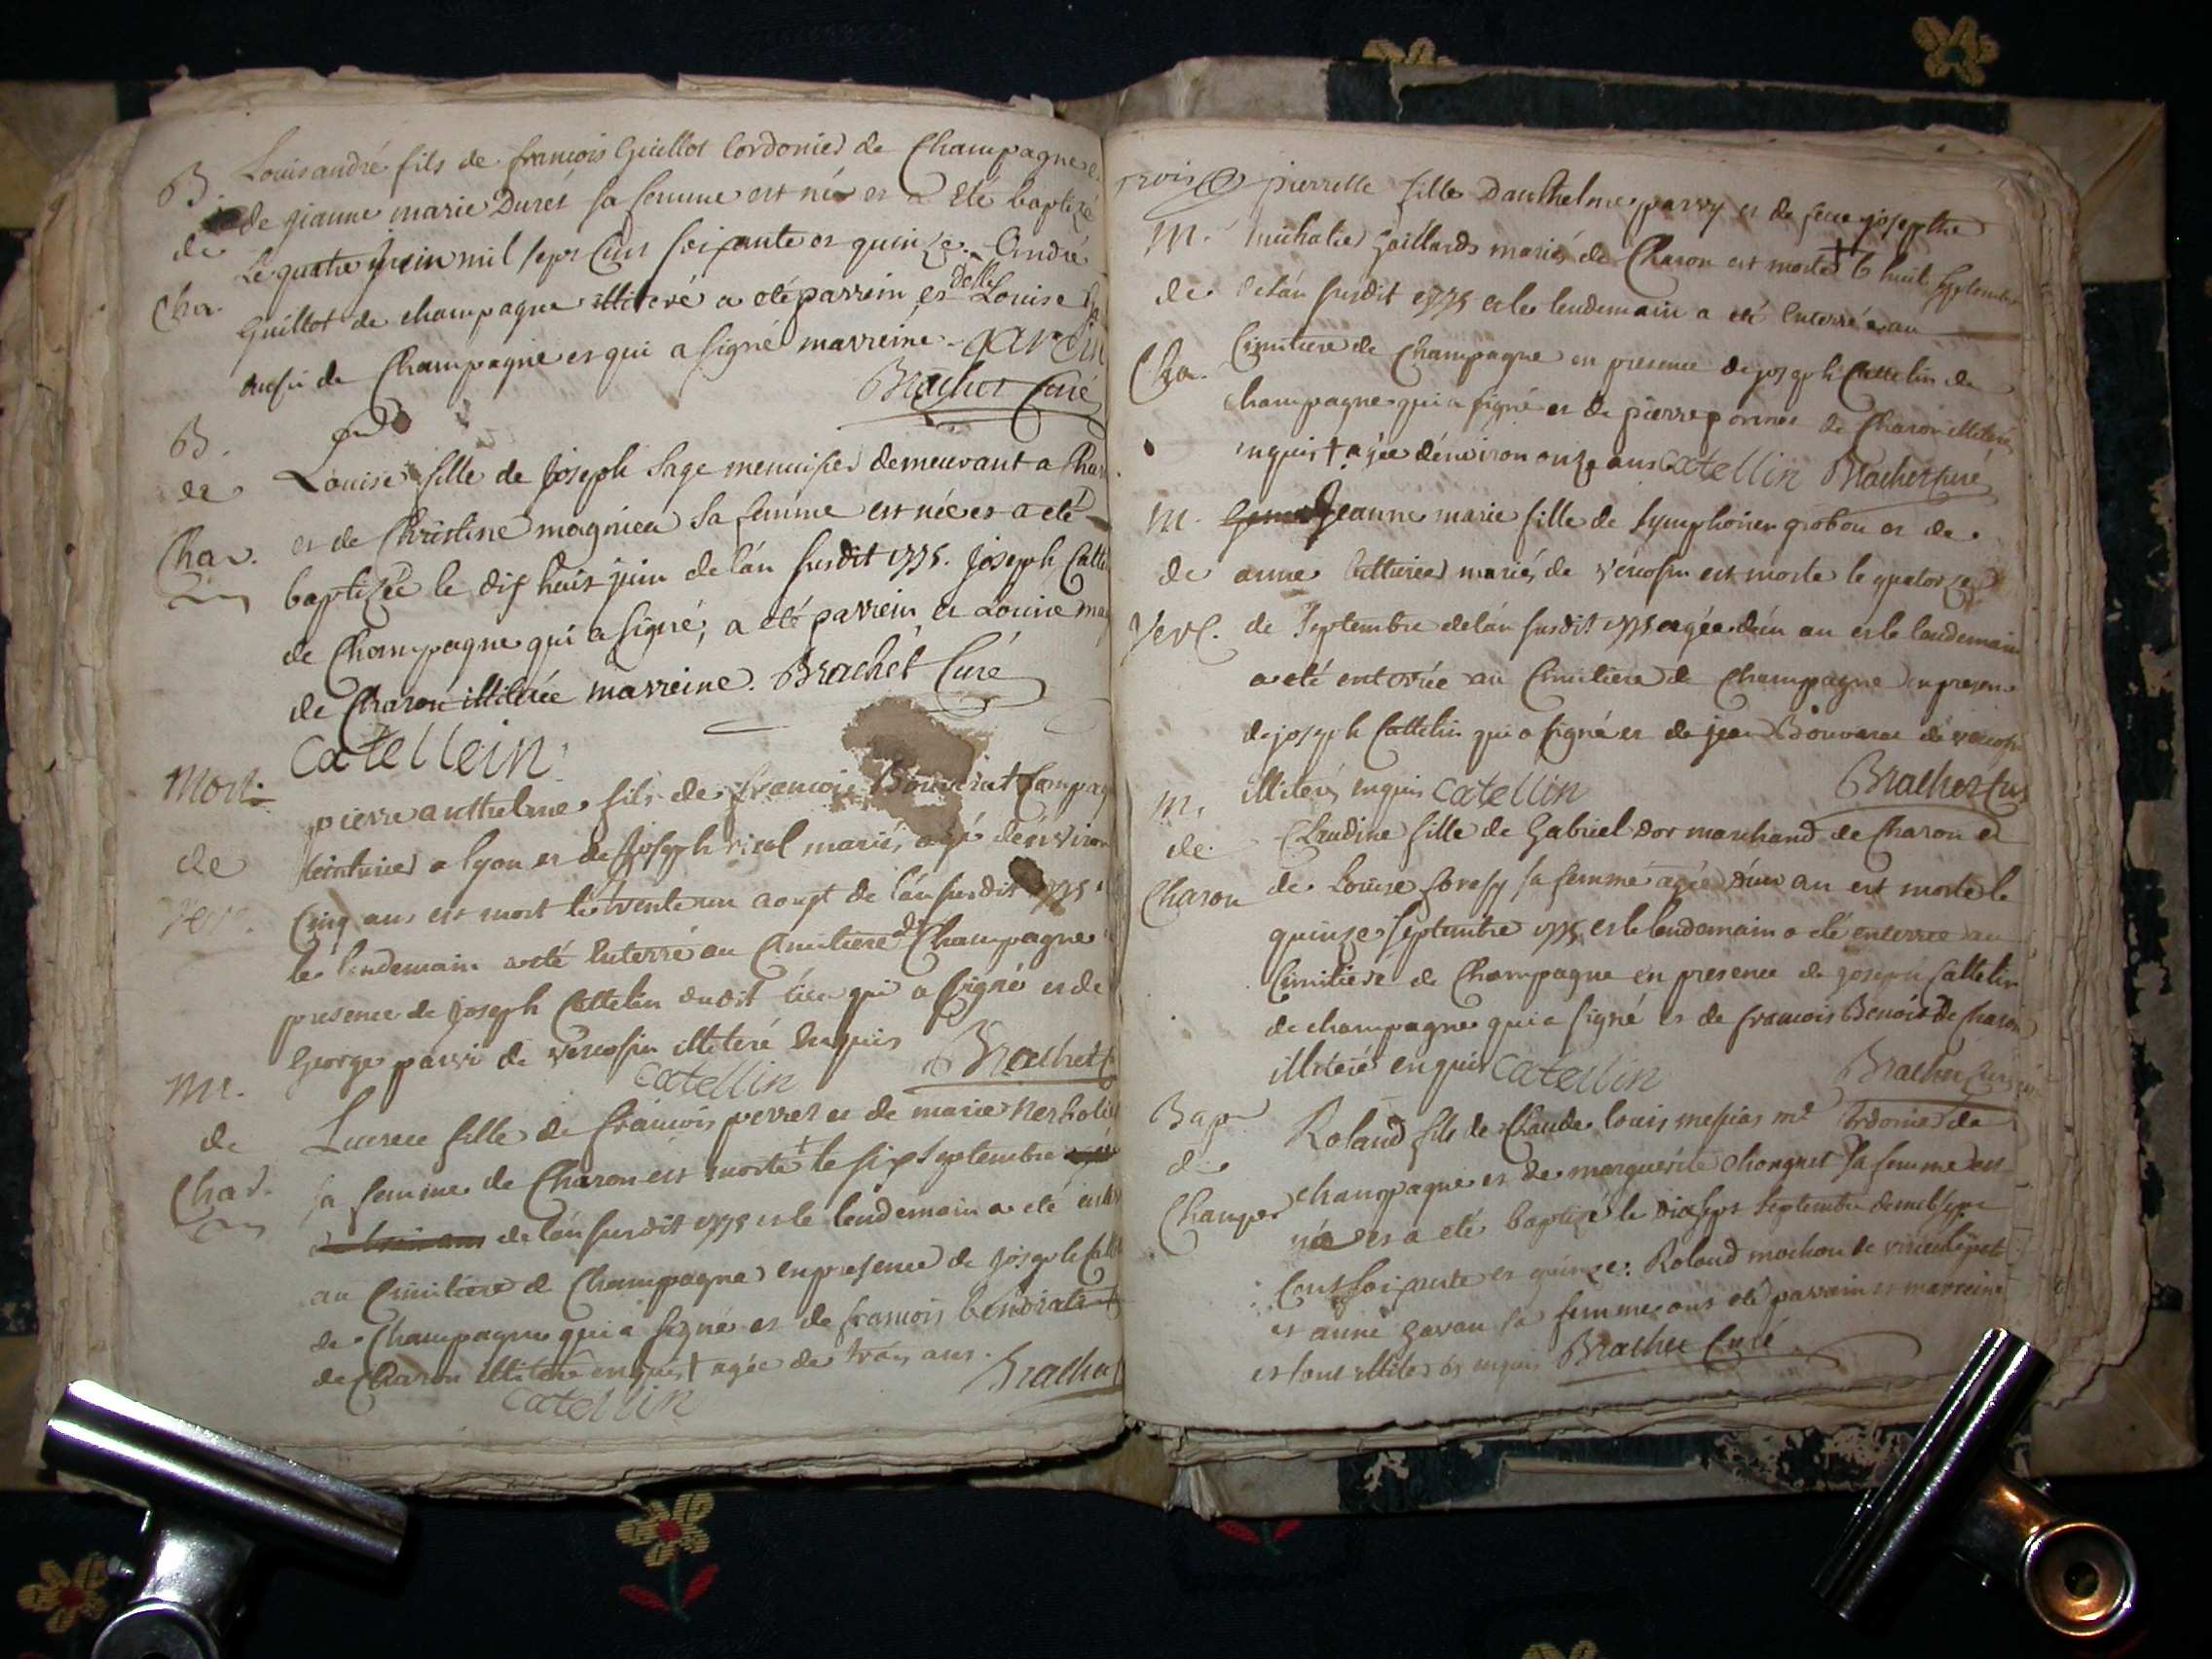 B.
de
Cha.
Louis andré fils de francois Guillot Cordonier de Champagne e
de jeanne marie Duret sa femme est né et a eté baptizé
Le quatre juin mil sept Cens soixante et quinze. André
Guillot de champagne illiteré a eté parrein, et Delle Louise
aussi de Champagne et qui a signé marreine. garcin
Brachet Curé
B.
de
Char.
Louise fille de Joseph Sage menuisier demeurant a Char
et de Christine magnien sa femme est née et a eté
baptizée le dix huit juin de l'an susdit 1775. Joseph Catte
de Champagne qui a signé, a eté parrein, et Louise mag
de Charon illiterée marreine. Brachet Curé
Catellein
Mort
de
Ver.
pierre anthelme fils de francois Bouverat Compag
teinturier a lyon et de Joseph vial mariés, agé d'environ
Cinq ans est mort le trente un aoust de l'an susdit 1775
le lendemain a eté enterré au Cimitiere de Champagne
presence de Joseph Cattelin dudit lieu qui a signé et de
George parri de vercosin illiteré enquis
Catellin Brachet
M.
de
Char.
Lucrece fille de francois perret et de marie
sa femme de Charon est morte + le six Septembre
de l'an susdit 1775 et le lendemain a eté
au Cimitiere de Champagne en presence de Joseph Catt
de Champagne qui a signé et de francois
de Charon illiteré enquis + agée de trois ans. Brachet
Catellin
trois
M.
de
Cha.
pierrette fille D'anthelme parry et de feue josepthe
michalier Gaillards mariés, de Charon est morte + le huit Septembre
de l'an susdit 1775 et le lendemain a eté Enterrée au
Cimitiere de Champagne en presence de joseph Cattelin de
Champagne qui a signé et de pierre de Charon illiteré
enquis + agée d'environ onze ans Catellin Brachet Curé
M.
de
Verc.
Jeanne marie fille de Symphorien grobon et de
anne mariés, de vercosin est morte le quatorze
de Septembre de l'an susdit 1775 agée d'un an et le lendemain
a eté enterrée au Cimitiere de Champagne en presence
de joseph Cattelin qui a signé et de jean Bouverat de vercosin
illiteré, enquis Catellin Brachet Cur
M.
de
Charon
Claudine fille de Gabriel Dor marchand de Charon et
de Louise sa femme agée d'un an est morte le
quinze Septembre 1775 et le lendemain a eté enterrée au
Cimitiere de Champagne en presence de joseph Cattelin
de champagne qui a signé et de francois Benoit de Charon
illiteré, enquis Catellin Brachet Curé
Bap
de
Champ
Roland fils de Claude louis messias md Cordonier de
Champagne et de marguerite Chonguet sa femme est
né et a eté baptizé le dix sept Septembre de mil sept
Cent soixante et quinze: Roland mochon de
et anne Gavan sa femme ont eté parrain et marreine
et sont illiterés enquis Brachet Curé